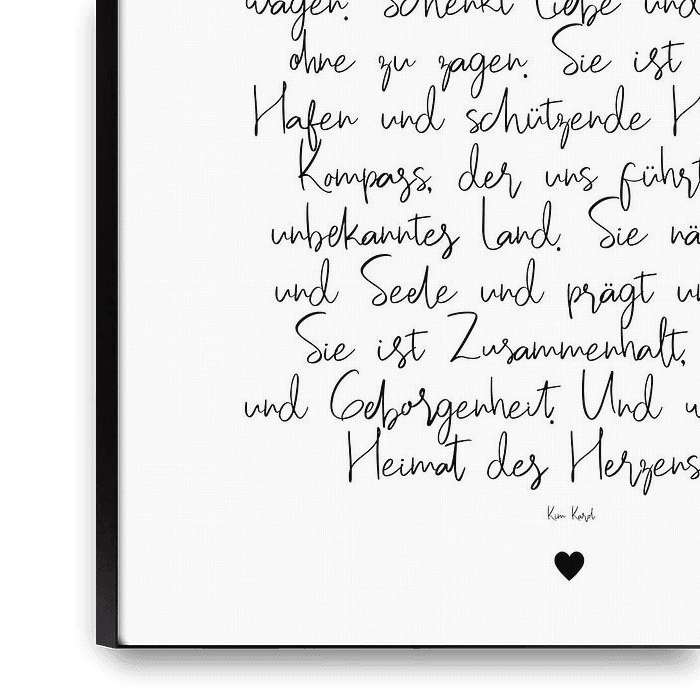 wagen. Schenkt Liebe und
ohne zu zagen. Sie ist
Hafen und schützende H
Kompass, der uns führt
unbekanntes Land. Sie nä
und Seele und prägt un
Sie ist Zusammenhalt,
und Geborgenheit. Und u
Heimat des Herzens
Kim Kard